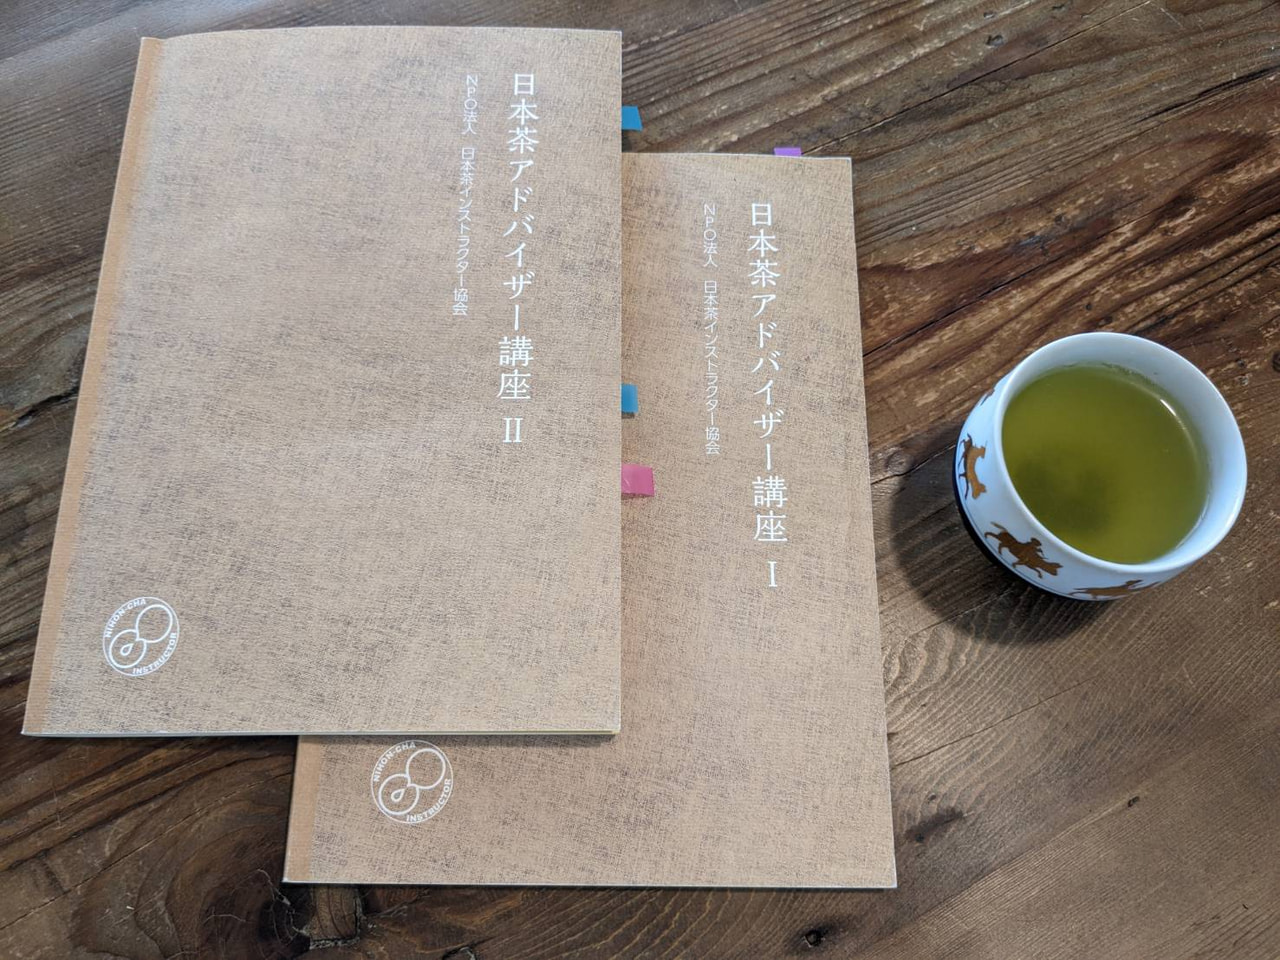 日本茶アドバイザー講座 II
NPO法人 日本茶インストラクター協会
NIHON-CHA INSTRUCTOR
日本茶アドバイザー講座 I
NPO法人 日本茶インストラクター協会
NIHON-CHA INSTRUCTOR